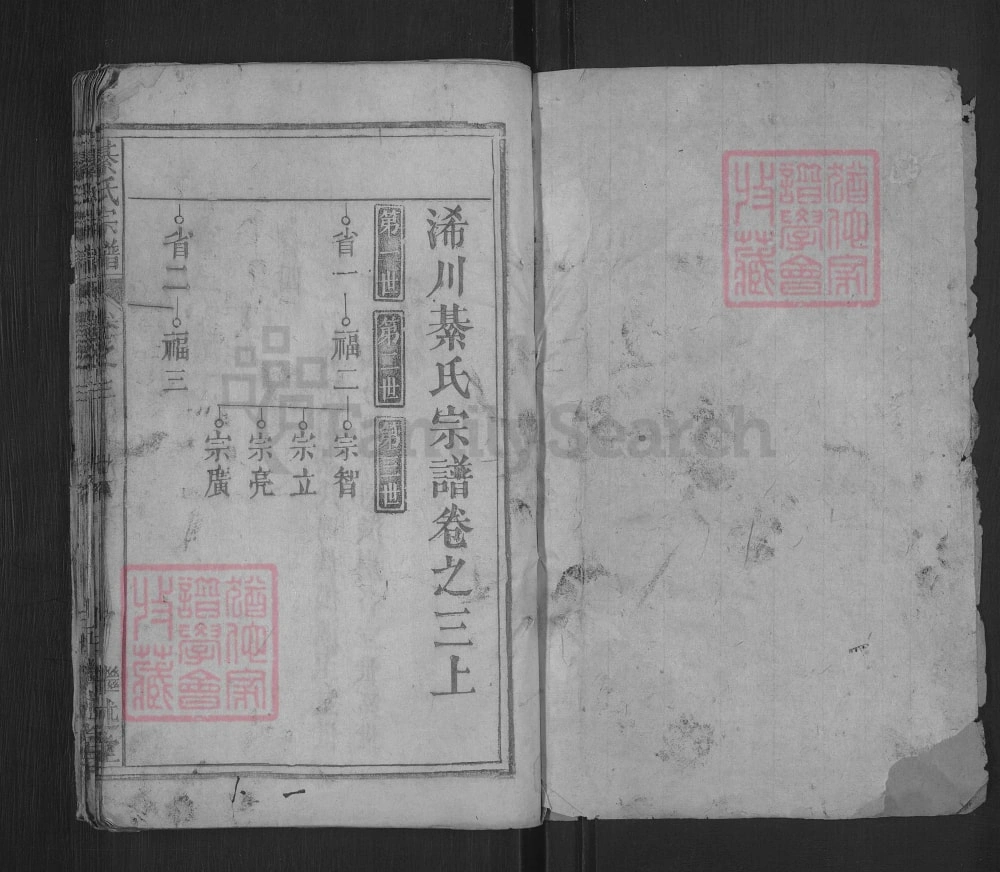 浠川綦氏宗譜卷之三上
第一世 第二世 第三世
省一 福二 宗智
宗立
宗亮
宗廣
省二 福三
綦氏宗譜 卷之三
譜學會
特藏
譜學會
特藏
FamilySearch